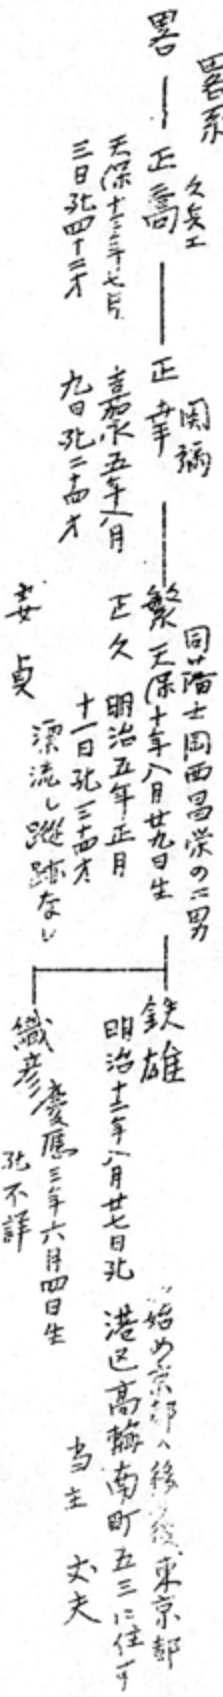 畧系
畧
正喬
久兵エ
天保十三年七月
三日死四十二才
正幸
関弥
嘉永五年八月
九日死二十四才
同藩士岡西昌栄の二男
繁 天保十年八月廿九日生
正久 明治五年正月
十一日死三十四才
妻 貞
漂流し蹤跡なし
鉄雄
明治十二年八月廿七日死
始め京都へ移後東京都
港区高輪南町五三に住す
当主 丈夫
織彦
慶應三年六月四日生
死不詳